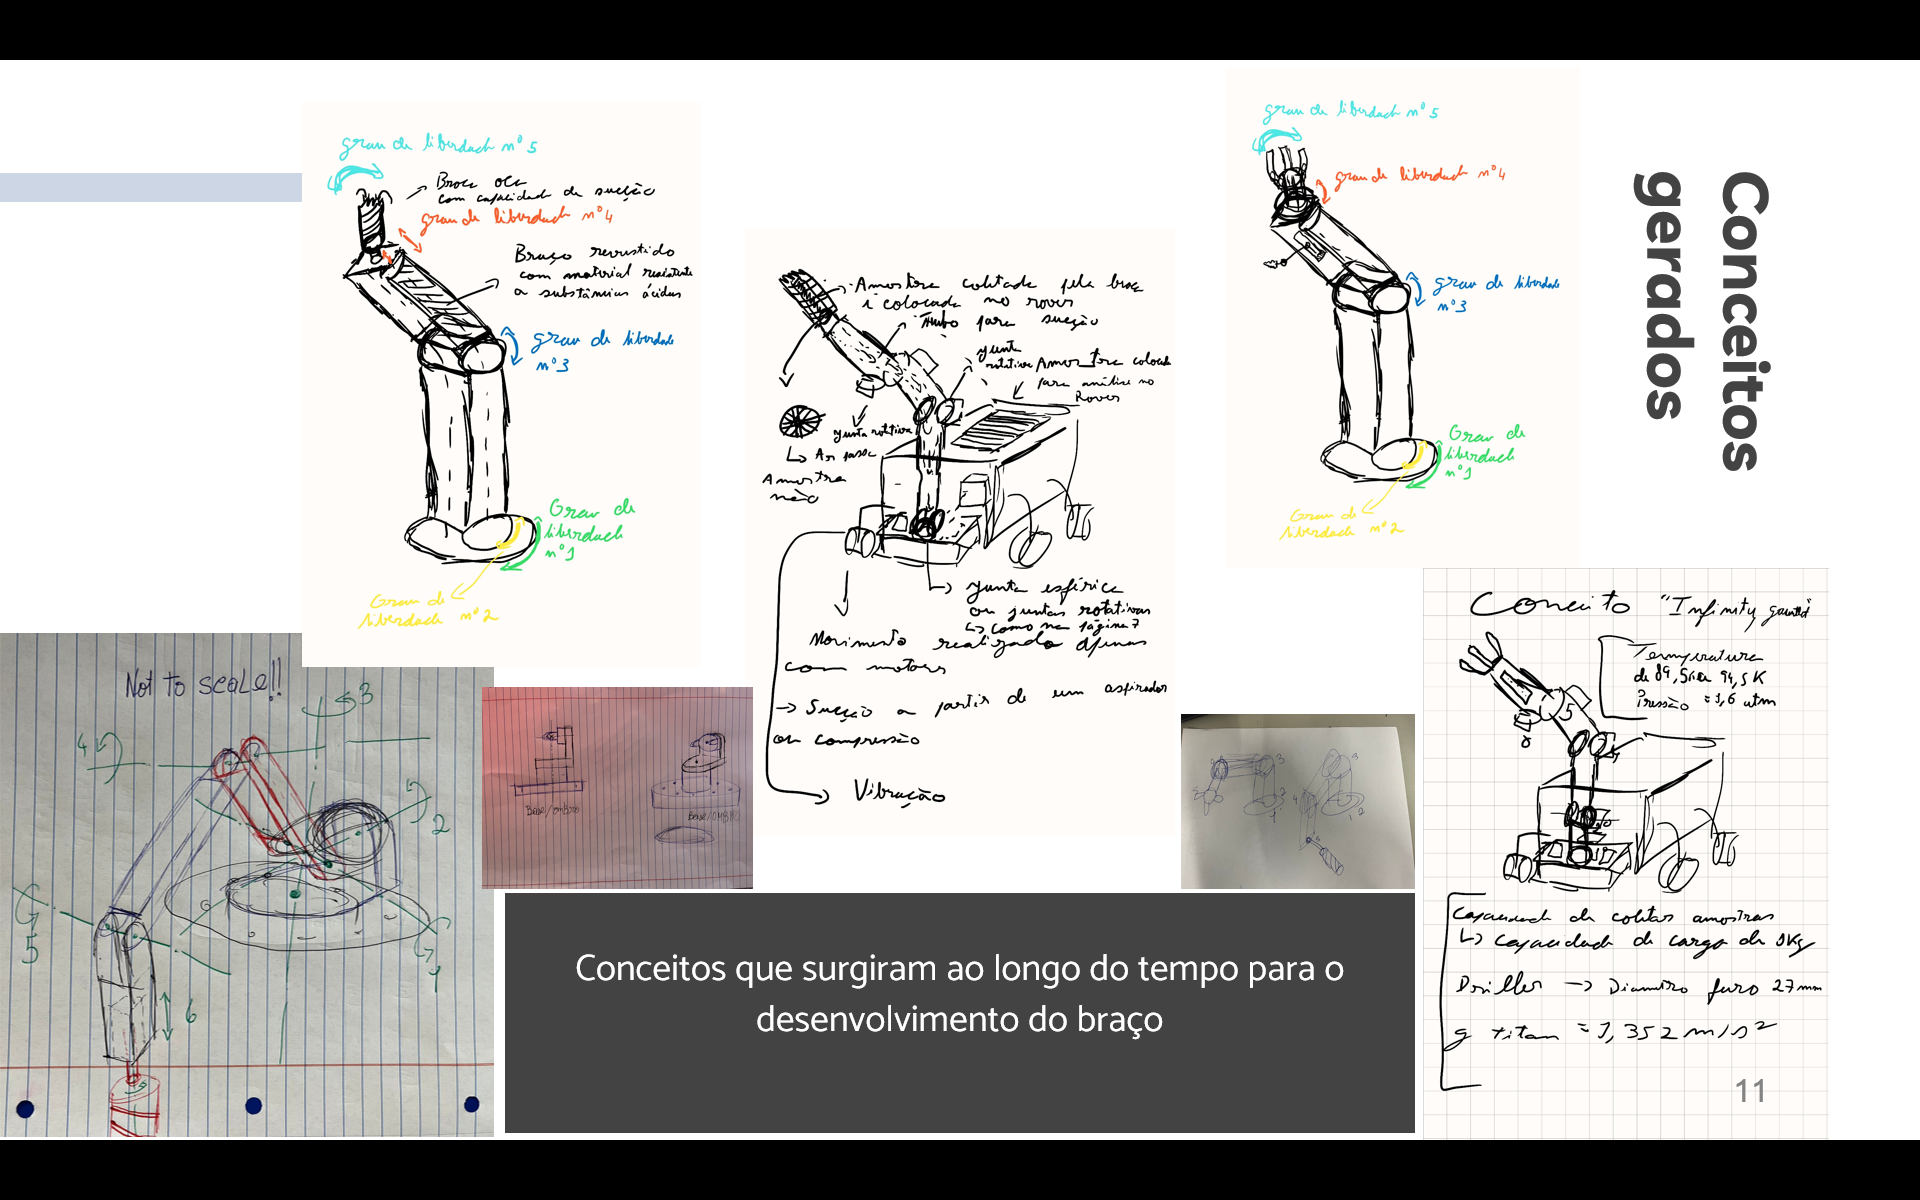 Conceitos
gerados
grau de liberdade nº5
Broca oca
com capacidade de sucção
grau de liberdade nº4
Braço revestido
com material resistente
a substâncias ácidas
grau de liberdade
nº3
Grau de
liberdade
nº1
Grau de
liberdade nº2
Amostra coletada pela broca
é colocada no rover
Tubo para sucção
junta
rotativa
Amostra colocada
para análise no
Rover
junta rotativa
Ar passa
Amostra
não
junta esférica
ou juntas rotativas
como na página 7
Movimento realizado apenas
com motores
Sucção a partir de um aspirador
ou compressão
Vibração
grau de liberdade nº5
grau de liberdade nº4
grau de liberdade
nº3
Grau de
liberdade
nº1
Grau de
liberdade nº2
Not to scale!!
3
4
2
5
1
6
Base/ombro
Base/OMBRO
Conceito "Infinity
Temperatura
de 94,5K
Pressão = 1,6 atm
5
Capacidade de coletar amostras
capacidade de carga de
Driller -> Diametro furo 27mm
g titan = 1,352 m/s²
Conceitos que surgiram ao longo do tempo para o
desenvolvimento do braço
11